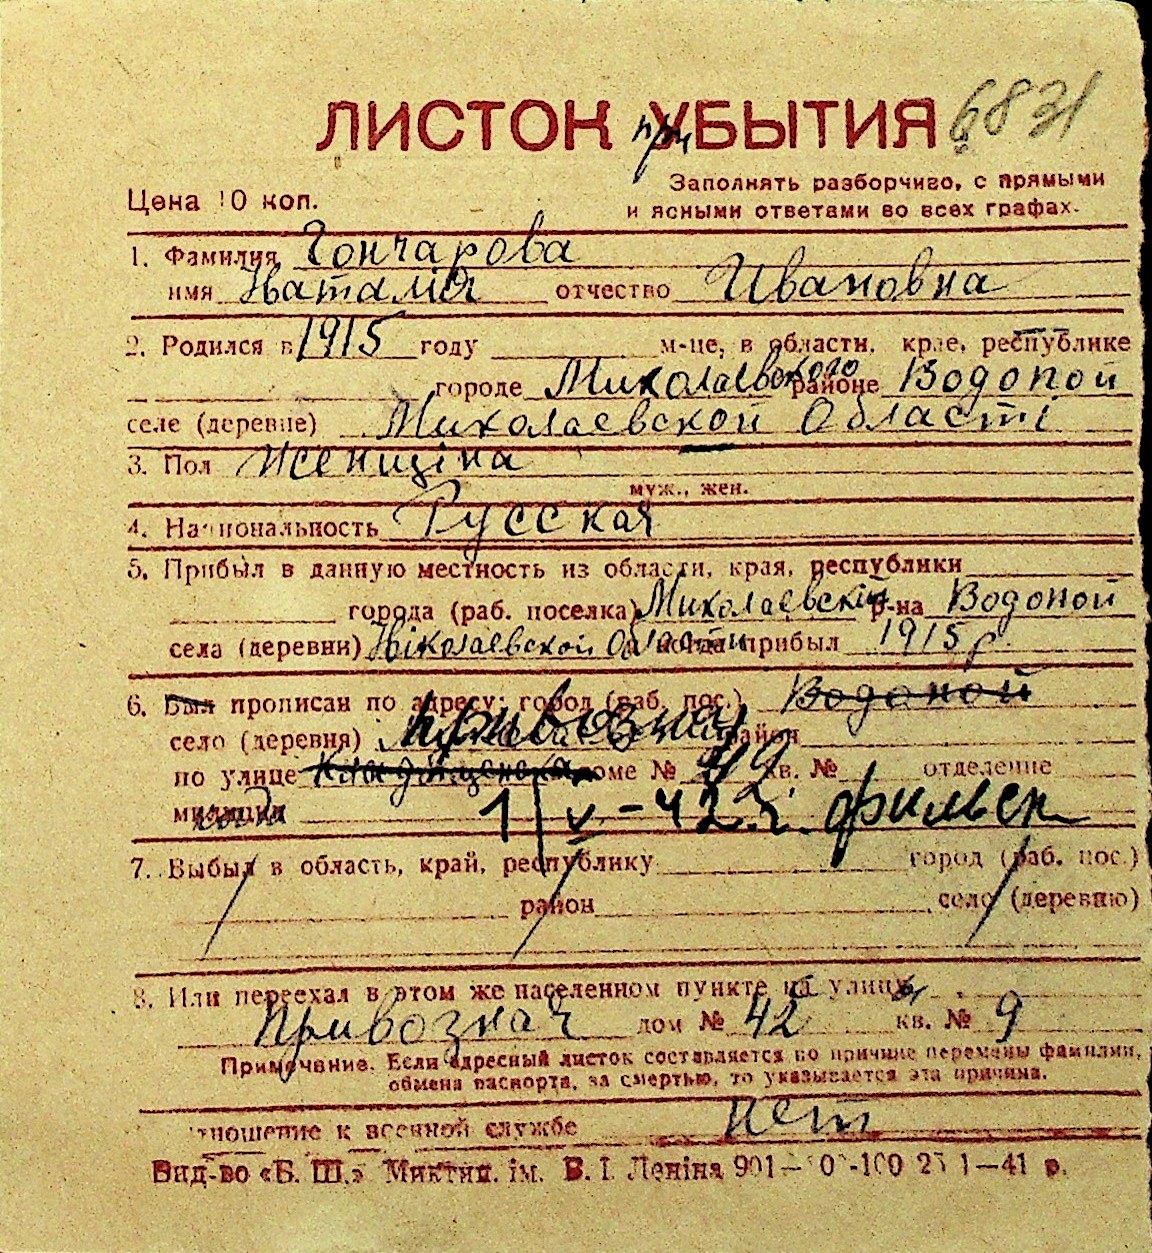 ЛИСТОК УБЫТИЯ 6831
при
Цена 10 коп.
Заполнять разборчиво, с прямыми
и ясными ответами во всех графах.
1. Фамилия Гончарова
имя Наталия отчество Ивановна
2. Родился в 1915 году м-це, в области, крае, республике
городе Миколаевского районе Водопой
селе (деревне) Миколаевской Области
3. Пол Женщіна
муж., жен.
4. Национальность Русская
5. Прибыл в данную местность из области, края, республики
города (раб. поселка) Миколаевский р-на Водопой
села (деревни) Ніколаевской Области когда прибыл 1915 г.
6. Был прописан по адресу: город (раб. пос.) Водопой
село (деревня) Привозная район
по улице доме № 42 кв. № отделение
милиции 1/V-42 г.
7. Выбыл в область, край, республику город (раб. пос.)
район село (деревню)
8. Или переехал в этом же населенном пункте на улицу
Привозная дом № 42 кв. № 9
Примечание. Если адресный листок составляется по причине перемены фамилии,
обмена паспорта, за смертью, то указывается эта причина.
тношение к военной службе нет
Вид-во «Б. Ш.» Миктип. ім. В. І. Леніна 901 1—41 р.